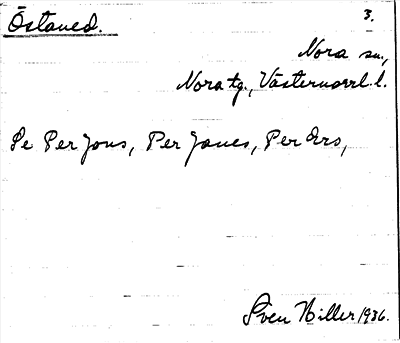 Östaned. 3.
Nora sn.,
Nora tg., Västernorrl. l.
Se Per Jons, Per Janes, Per Ers,
Sven Hiller 1936.